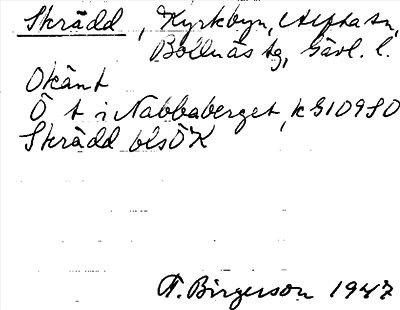 Skrädd, Kyrkbyn, Alfta sn,
Bollnäs tg, Gävl. l.
Okänt
Ö t i Nabbaberget, k G10980
Skrädd bls ÖK
A. Birgerson 1947